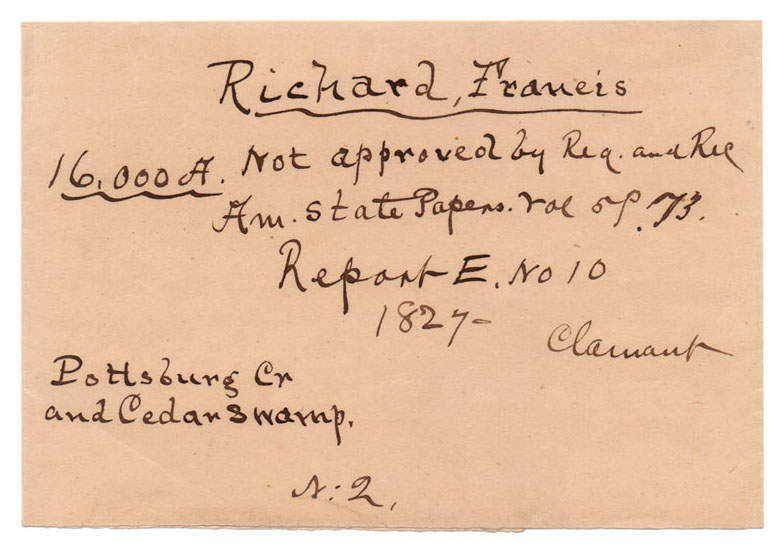 Richard, Francis
16,000 A. Not approved by Reg. and Rec
Am. State Papers. Vol 5 P. 73.
Report E. No 10
1827-
Clamant
Pottsburg Cr
and Cedar Swamp.
N: 2,